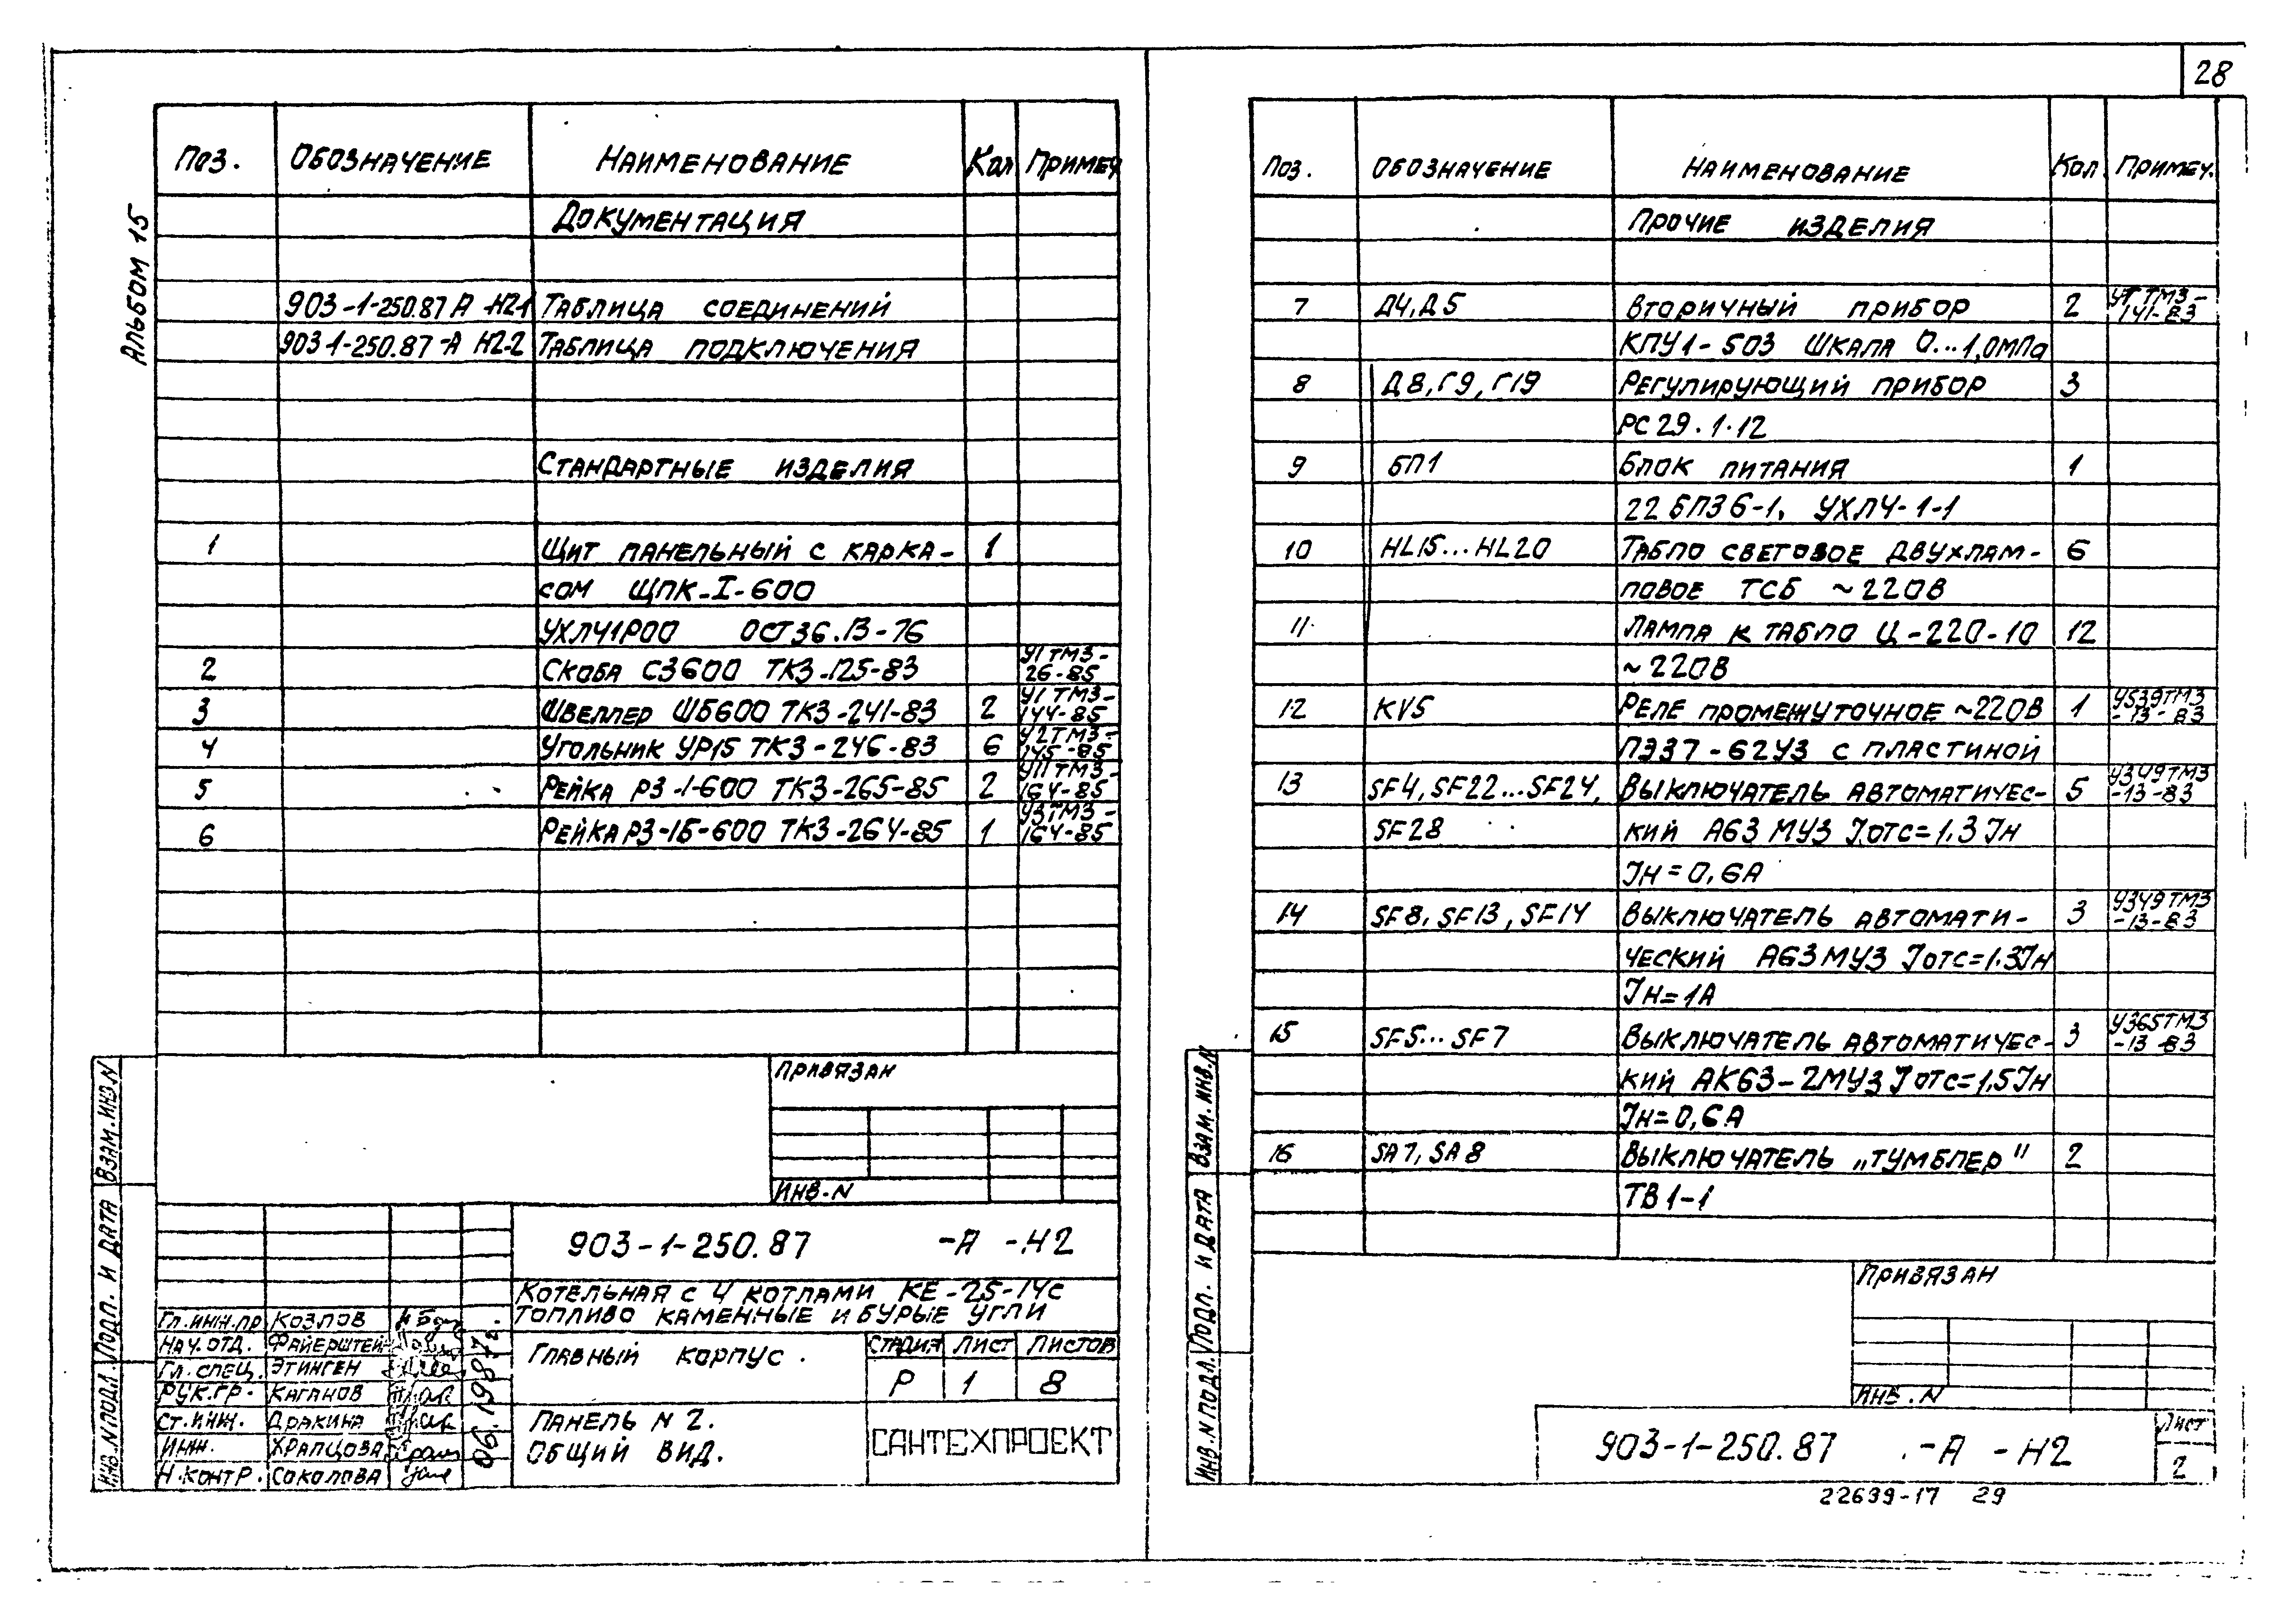 28
Альбом 15
Поз. Обозначение Наименование Кол Примеч
Документация
903-1-250.87 А -Н2-1 Таблица соединений
903-1-250.87 -А Н2-2 Таблица подключения
Стандартные изделия
1 Щит панельный с карка- 1
сом ЩПК-I-600
УХЛЧ1Р00 ОСТ36.13-76
У1 ТМ3-
2 Скоба С3600 ТК3-125-83 26-85
У1 ТМ3-
3 Швеллер ШБ600 ТК3-241-83 2 144-85
У2ТМ3-
4 Угольник УР15 ТК3-246-83 6 145-85
У11 ТМ3-
5 Рейка Р3-1-600 ТК3-265-85 2 164-85
У3ТМ3-
6 Рейка Р3-1Б-600 ТК3-264-85 1 164-85
Привязан
Инв.N
903-1-250.87 -А -Н2
Котельная с 4 котлами КЕ-25-14с
топливо каменные и бурые угли
Гл.инж.пр Козлов
Нач.отд. Файерштейн
Гл.спец. Этинген
Рук.гр. Каганов
Ст.инж. Дракина
Инж. Храпцова
Н.контр. Соколова
06.1987г.
Главный корпус.
Стадия Лист Листов
Р 1 8
Панель N 2.
Общий вид.
САНТЕХПРОЕКТ
Инв.N подл. Подп. и дата Взам.инв.N
Поз. Обозначение Наименование Кол. Примеч.
Прочие изделия
7 Д4,Д5 Вторичный прибор 2 ТМ3-
141-83
КПУ1-503 шкала 0...1,0МПа
8 Д8,Г9,Г19 Регулирующий прибор 3
РС29.1.12
9 БП1 Блок питания 1
22БП36-1, УХЛЧ-1-1
10 HL15...HL20 Табло световое двухлам- 6
повое ТСБ ~220В
11 Лампа к табло Ц-220-10 12
~220В
12 KV5 Реле промежуточное ~220В 1 У539ТМ3
-13-83
ПЭ37-62У3 с пластиной
13 SF4,SF22...SF24, Выключатель автоматичес- 5 У349ТМ3
-13-83
SF28 кий А63 МУ3 Jотс=1,3Jн
Jн=0,6А
14 SF8,SF13,SF14 Выключатель автомати- 3 У349ТМ3
-13-83
ческий А63МУ3 Jотс=1.3Jн
Jн=1А
15 SF5...SF7 Выключатель автоматичес- 3 У365ТМ3
-13-83
кий АК63-2МУ3 Jотс=1,5Jн
Jн=0,6А
16 SA7,SA8 Выключатель „тумблер" 2
ТВ1-1
Привязан
Инв.N
903-1-250.87 -А -Н2
Лист
2
Инв.N подл. Подп. и дата Взам.инв.N
22639-17 29